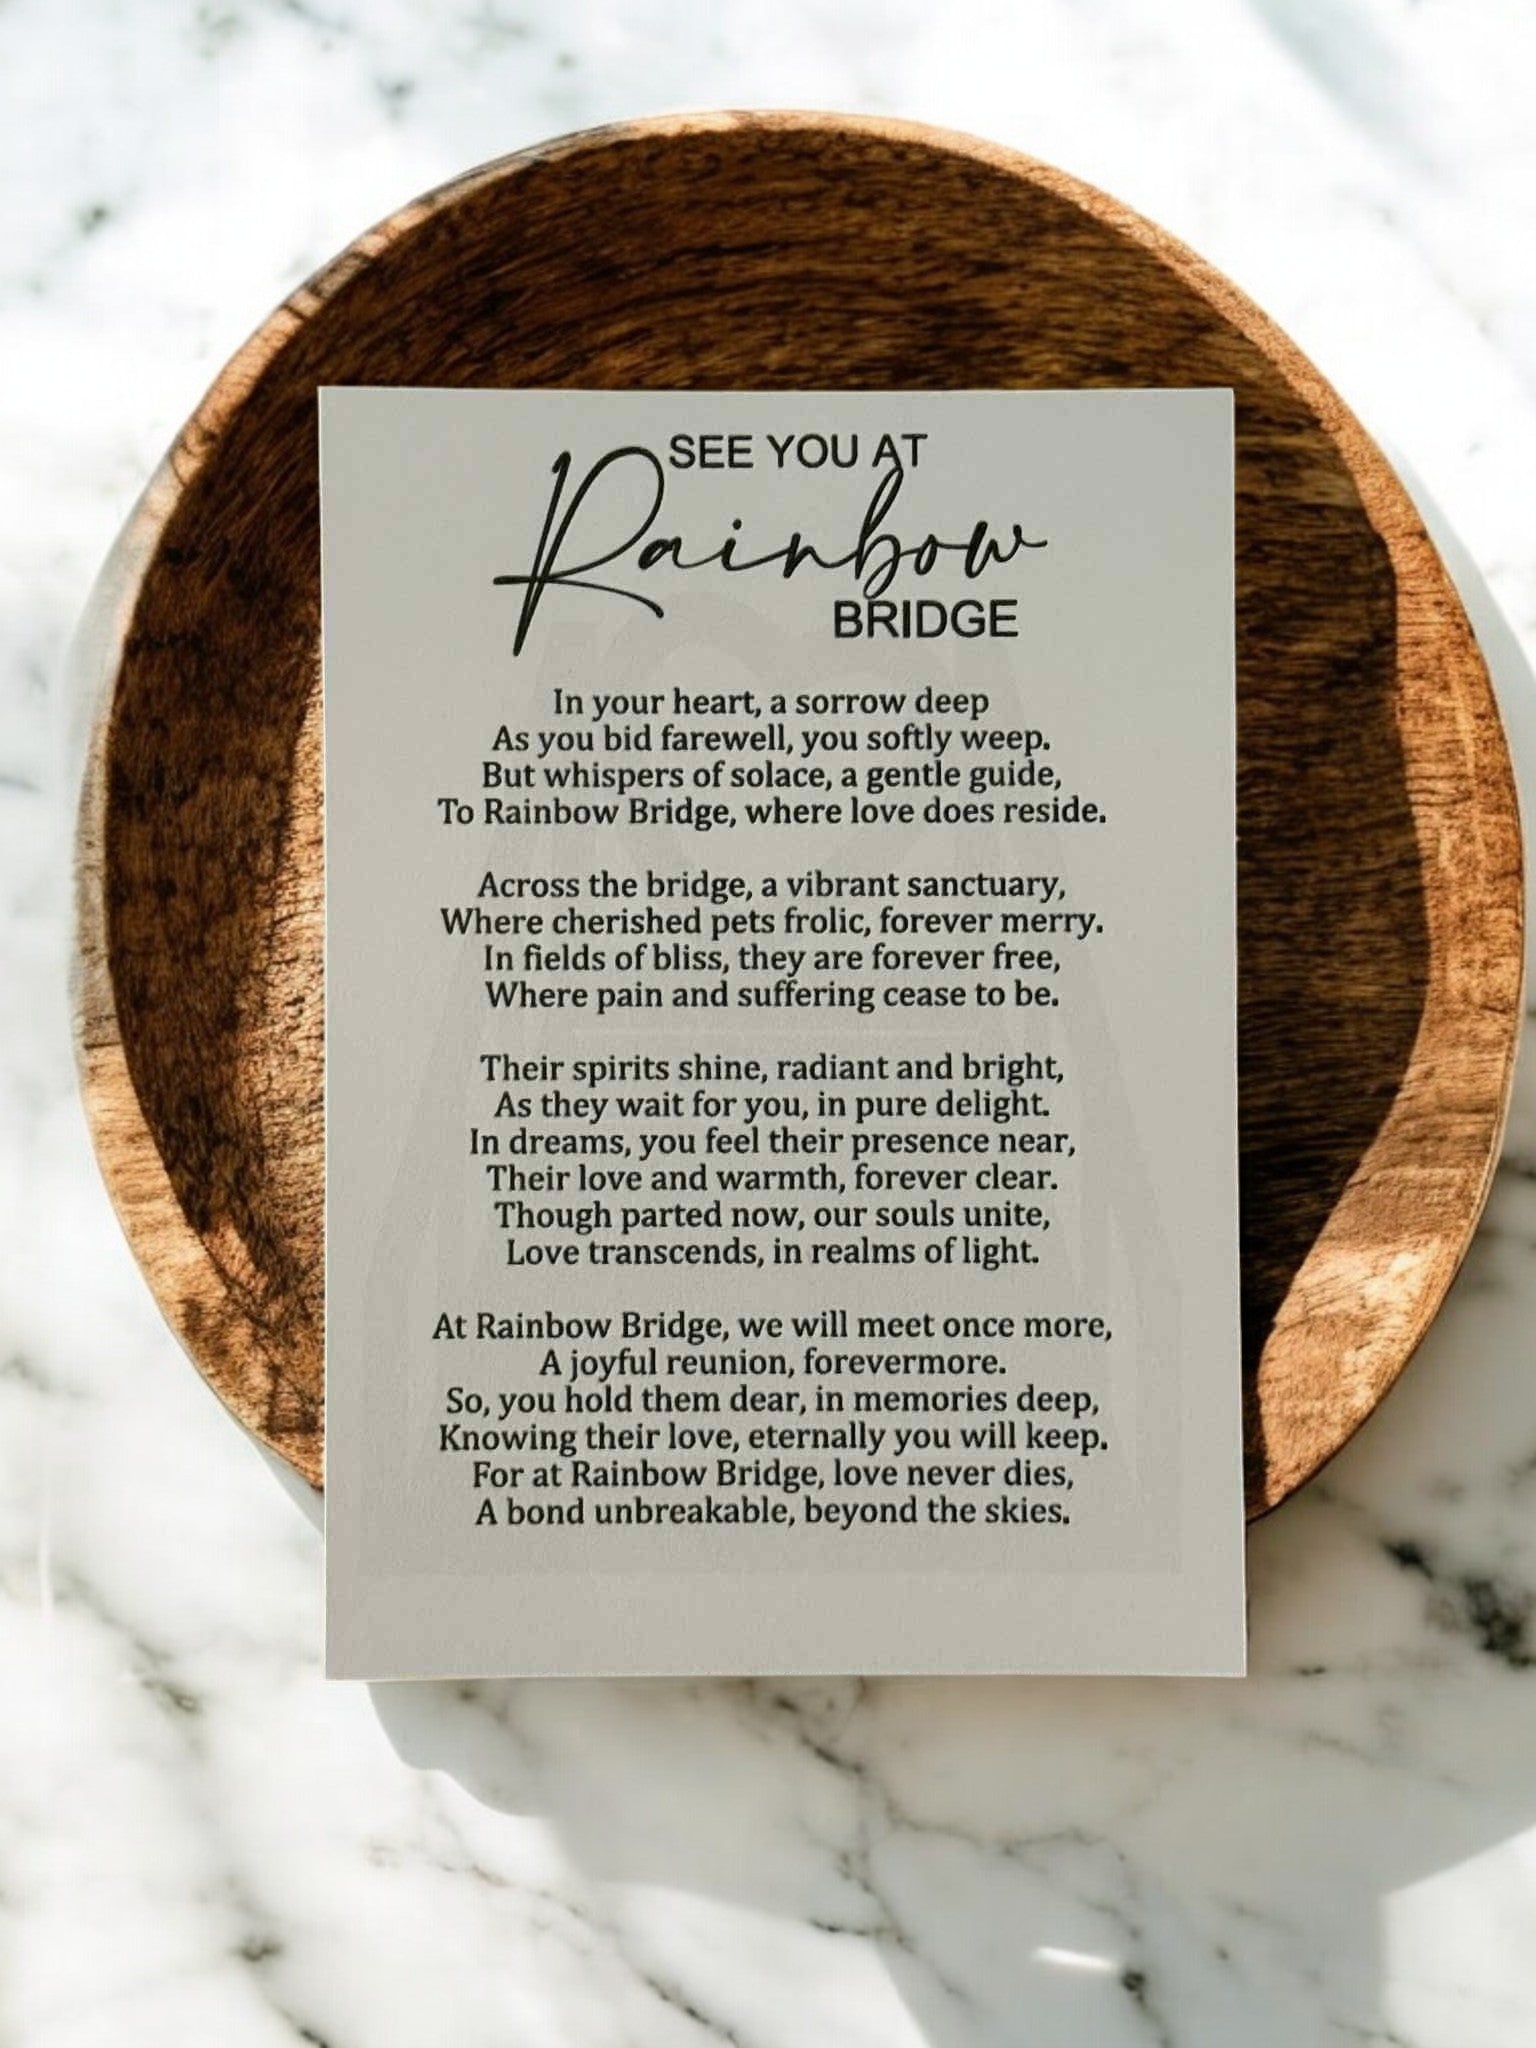 SEE YOU AT
Rainbow
BRIDGE
In your heart, a sorrow deep
As you bid farewell, you softly weep.
But whispers of solace, a gentle guide,
To Rainbow Bridge, where love does reside.
Across the bridge, a vibrant sanctuary,
Where cherished pets frolic, forever merry.
In fields of bliss, they are forever free,
Where pain and suffering cease to be.
Their spirits shine, radiant and bright,
As they wait for you, in pure delight.
In dreams, you feel their presence near,
Their love and warmth, forever clear.
Though parted now, our souls unite,
Love transcends, in realms of light.
At Rainbow Bridge, we will meet once more,
A joyful reunion, forevermore.
So, you hold them dear, in memories deep,
Knowing their love, eternally you will keep.
For at Rainbow Bridge, love never dies,
A bond unbreakable, beyond the skies.